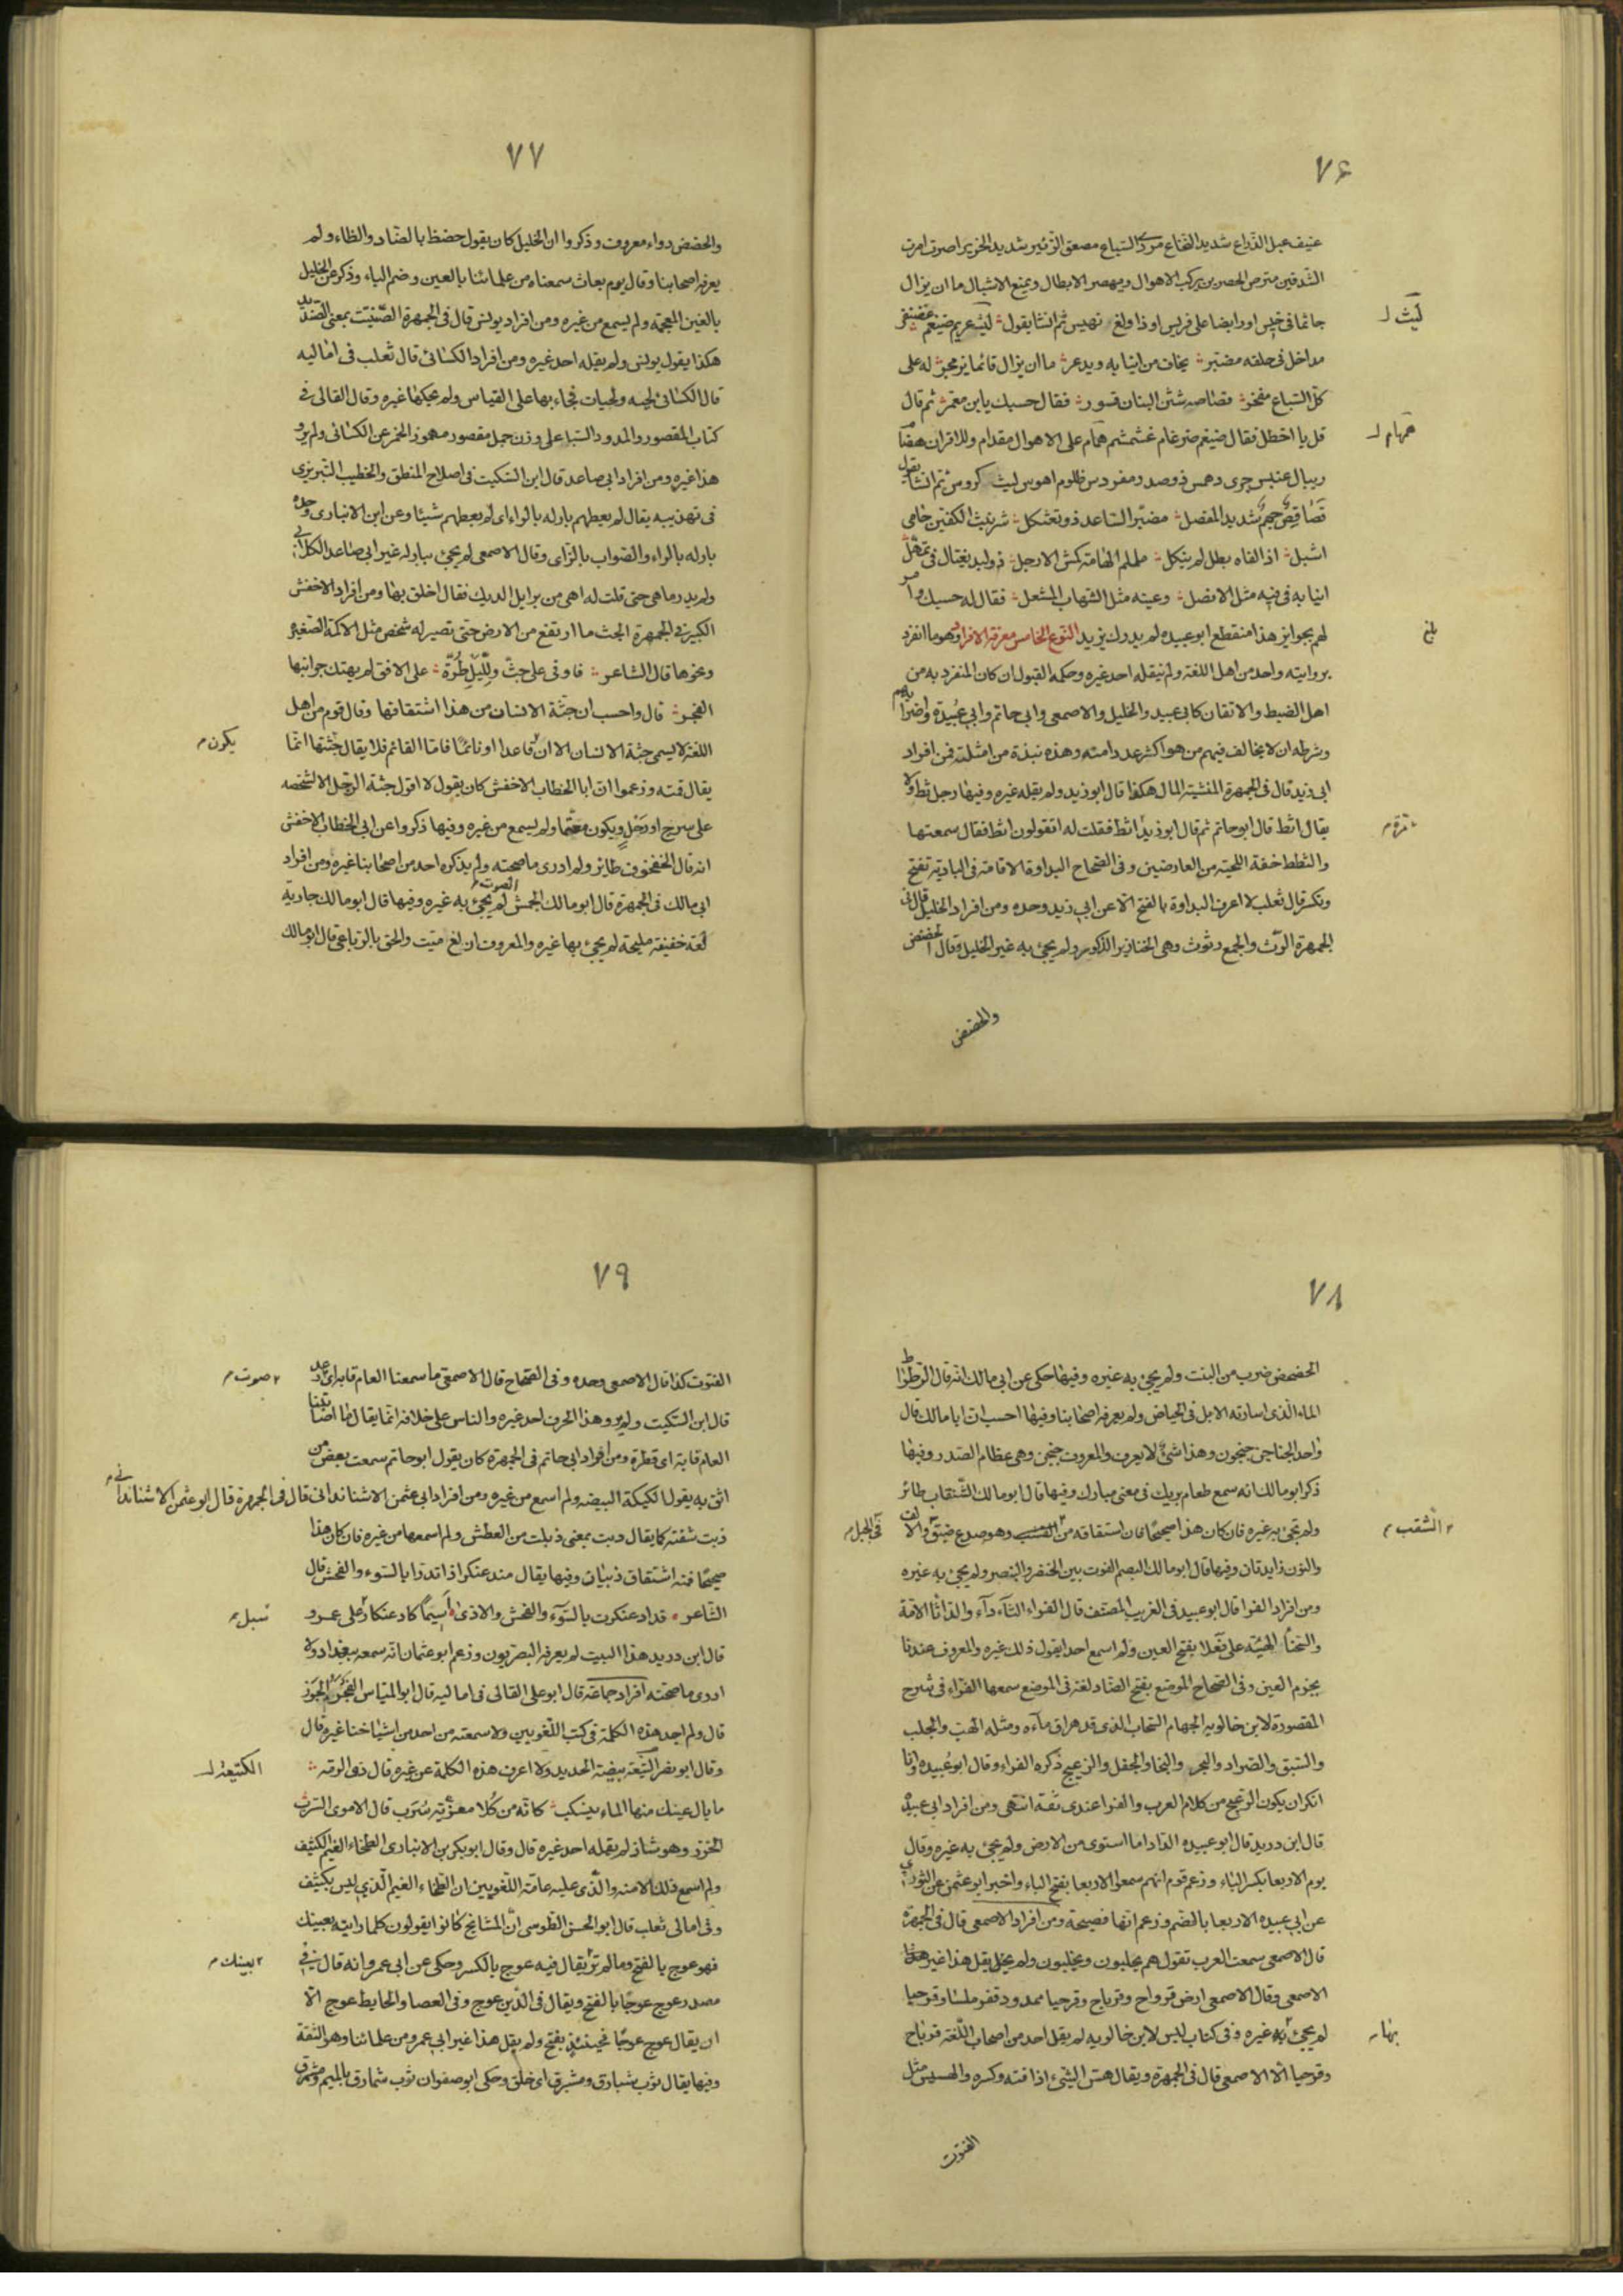 ٧٦
عنيف عبل الذراع شديد النخاع مردى السباع مصعق الزئير شديد الخرير اصرت امرت
الشدقين مترص الحصر بن يركب الاهوال ويهصر الابطال ويمنع الاشبال ما ان يزال
جاثما فى خيس اورابضا على فريس اوذا ولغ نهيس ثم انشا يقول ليث عريم ضيغم غضنفر
ليث
مداخل فى خلقه مضبر يخاف من انيابه ويدعر ما ان يزال قائما يزمجر له على
كل السباع مفخر قصاصة شثن البنان قسور فقال حسبك يابن معمر ثم قال
قل يا اخطل فقال ضيغم ضرغام غشمشم همام على الاهوال مقدام وللاقران هضام
همهام
ريبال عنبس جرى دهمس ذو صدر مفردس ظلوم اهوس ليث كروس ثم انشا يقول
قصاقص جهم شديد المفصل مضبر الساعد ذو تعثكل شرنبث الكفين حامى
اشبل اذا لقاه بطل لم ينكل ململم الهامة كمش الارجل ذو لبد يغتال فى تمهل
انيابه فى فيه مثل الانصل وعينه مثل الشهاب المشعل فقال له حسبك وامر
لهم بجوايز هذا منقطع ابو عبيده لم يدرك يزيد النوع الخامس معرفة الافراد وهو ما انفرد
بروايته واحد من اهل اللغة ولم ينقله احد غيره وحكمه القبول ان كان المنفرد به من
اهل الضبط والاتقان كابى عبيد والخليل والاصمعى وابى حاتم وابى عبيدة واضرابهم
وشرطه ان لا يخالف فيهم من هو اكثر عددا منه وهذه نبذة من امثلته فمن افراد
ابى زيد قال فى الجمهرة المنشية المال هكذا قال ابو زيد ولم يقله غيره وفيها رجل ثط ولا
يقال اثط قال ابو حاتم ثم قال ابو زيد اثط فقلت له اتقولون اثط فقال سمعتها
والثطط خفة اللحية من العارضين وفى الصحاح البداوة الاقامة فى البادية تفتح
وتكسر قال ثعلب لا اعرف البداوة بالفتح الا عن ابى زيد وحده ومن افراد الخليل قال فى
الجمهرة الرت والجمع رتوت وهى الخنازير الذكور ولم يجئ به غير الخليل وقال الحضض
والحضض
٧٧
والحضض دواء معروف وذكروا ان الخليل كان يقول حضظ بالضاد والظاء ولم
يعرفه اصحابنا وقال يوم بعاث سمعناه من علمائنا بالعين وضم الباء وذكر عن الخليل
بالغين المعجمة ولم يسمع من غيره ومن افراد يونس قال فى الجمهرة الصنتيت بمعنى الصنديد
هكذا يقول يونس ولم يقله احد غيره ومن افراد الكسائى قال ثعلب فى اماليه
قال الكسائى لجبه ولجبات فجاء بها على القياس ولم يحكها غيره وقال القالى فى
كتاب المقصور والممدود السبا على وزن جبل مقصور مهموز الخمر عن الكسائى ولم يرو
هذا غيره ومن افراد ابى صاعد قال ابن السكيت فى اصلاح المنطق والخطيب التبريزى
فى تهذيبه يقال لم يعطهم بارله بالراء اى لم يعطهم شيئا وعن ابن الانبارى وحده
بارله بالراء والصواب بالزاى وقال الاصمعى لم يجئ ببارله غير ابى صاعد الكلابى
ولم يدر ما هى حتى قلت له اهى من برايل الديك فقال اخلق بها ومن افراد الاخفش
الكبير فى الجمهرة الجث ما ارتفع من الارض حتى تصير له شخص مثل الاكمة الصغيرة
ونحوها قال الشاعر فاوفى على جث ولليل طرة على الافق لم يهتك جوانبها
الفجر قال واحسب ان جثة الانسان من هذا اشتقاقها وقال قوم من اهل
اللغة لا يسمى جثة الانسان الا ان قاعدا او نائما فاما القائم فلا يقال جثتها انما
يكون
يقال قمته وزعموا ان ابا الخطاب الاخفش كان يقول لا اقول جثة الرجل الا لشخصه
على سرج او رحل ويكون معتما ولم يسمع من غيره وفيها ذكروا عن ابى الخطاب الاخفش
انه قال الخفخوف طائر ولم ادرى ما صحته ولم يذكره احد من اصحابنا غيره ومن افراد
ابى مالك فى الجمهرة قال ابو مالك الجمش الصوت لم يجئ به غيره وفيها قال ابو مالك جارية
لعة خفيفة مليحة لم يجئ بها غيره والمعروف ان لغ ميت والحق بالرباعى قال ابو مالك
٧٨
الحضحض ضرب من النبت ولم يجئ به غيره وفيها حكى عن ابى مالك انه قال
الماء الذى اسارته الابل فى الحياض ولم يعرفه اصحابنا وفيها احسب ان ابا مالك قال
واحد الجناجن جنجون وهذا شئ لا يعرف والمعروف جنجن وهى عظام الصدر وفيها
ذكر ابو مالك انه سمع طعام بريك فى معنى مبارك وفيها قال ابو مالك الشنقاب طائر
ولم يجئ به غيره فان كان هذا صحيحا فان اشتقاقه من الشقب وهو صدع ضيق والالف
الشقب
فى الجبل
والنون زايدتان وفيها قال ابو مالك البصم الفوت بين الخنصر والبنصر ولم يجئ به غيره
ومن افراد الفرا قال ابو عبيد فى الغريب المصنف قال الفراء الثآء دآء والداثا الامة
والسحنا الهيئه على فعلا بفتح العين ولم اسمع احدا يقول ذلك غيره والمعروف عندنا
بجزم العين وفى الصحاح الموضع بفتح الضاد لغة فى الموضع سمعها الفراء فى شرح
المقصورة لابن خالويه الجهام السحاب الذى قد هراق مآءه ومثله الهف والجلب
والسيق والصراد والنجو والنجا والجفل والزعبج ذكره الفراء وقال ابو عبيده وانا
انكر ان يكون الزعبج من كلام العرب والفرا عندى ثقة انتهى ومن افراد ابى عبيدة
قال ابن دريد قال ابو عبيده الداداما استوى من الارض ولم يجئ به غيره وقال
يوم الاربعا بكسر الباء وزعم قوم انهم سمعوا الاربعا بفتح الباء واخبر ابو عثمن عن الثورى
عن ابى عبيده الاربعا بالضم وزعم انها فصيحة ومن افراد الاصمعى قال فى الجمهرة
قال الاصمعى سمعت العرب تقول هم يحلبون ويحلبون ولم يقل هذا غير
الاصمعى وقال الاصمعى ارض قرواح وقرباح وقرحيا ممدود قفر ملسا وقرحيا
لم يجئ به غيره وفى كتاب ليس لابن خالويه لم يقل احد من اصحاب اللغة قرباح
بها
وقرحيا الا الاصمعى قال فى الجمهرة ويقال هس الشئ اذا فته وكسره والهسيس مثل
الفتوت
٧٩
الفتوت كذا قال الاصمعى وحده وفى الصحاح قال الاصمعى ما سمعنا العام قابه اى رعد
صوت
قال ابن السكيت ولم يرو هذا الحرف احد غيره والناس على خلافه انما يقال ما اصابتنا
العام قابة اى قطرة ومن افراد ابى حاتم فى الجمهرة كان يقول ابو حاتم سمعت بعض من
اثق به يقول الكيكة البيضه ولم اسمع من غيره ومن افراد ابى عثمن الاشناندانى قال فى الجمهرة قال ابو عثمن الاشناندانى
ذبت شفته كما يقال دبت بمعنى ذبلت من العطش ولم اسمعها من غيره فان كان هذا
صحيحا فمنه اشتقاق ذبيان وفيها يقال منه عنكر اذا تدرا بالسوء والفحش قال
الشاعر قداد عنكرت بالسوء والفحش والاذى اسيما كاد عنكار على عمرو
سبل
قال ابن دريد هذا البيت لم يعرفه البصريون وزعم ابو عثمان انه سمعه ببغداد ولا
ادرى ما صحته افراد جماعة قال ابو على القالى فى اماليه قال ابو المياس الجوز
قال ولم اجد هذه الكلمة فى كتب اللغويين ولا سمعته من احد من اشياخنا غيره قال
وقال ابو نصر التيعة بيضة الحديد ولا اعرف هذه الكلمة عن غيره قال ذو الرمة
الكتيعة
ما بال عينك منها الماء ينسكب كانه من كلا مفرية سرب قال الاموى السرب
الخرز وهو شاذ لم يقمله احد غيره قال وقال ابو بكر بن الانبارى الطخاء الغيم الكثيف
ولم اسمع ذلك الا منه والذى عليه عامة اللغويين ان الطخاء الغيم الذى ليس بكثيف
وفى امالى ثعلب قال ابو الحسن الطوسى ان المشايخ كانوا يقولون كلما رايته بعينك
فهو عوج بالفتح وما لم تر يقال فيه عوج بالكسر وحكى عن ابى عمرو انه قال فى
بعينك
مصدر عوج عوجا بالفتح ويقال فى الدين عوج وفى العصا والحايط عوج الا
ان يقال عوج عوجا فحينئذ بفتح ولم يقل هذا غير ابى عمرو من علمائنا وهو الثقة
وفيها يقال ثوب شبارق ومشبرق اى خلق وحكى ابو صفوان ثوب شمارق بالميم ومشمرق